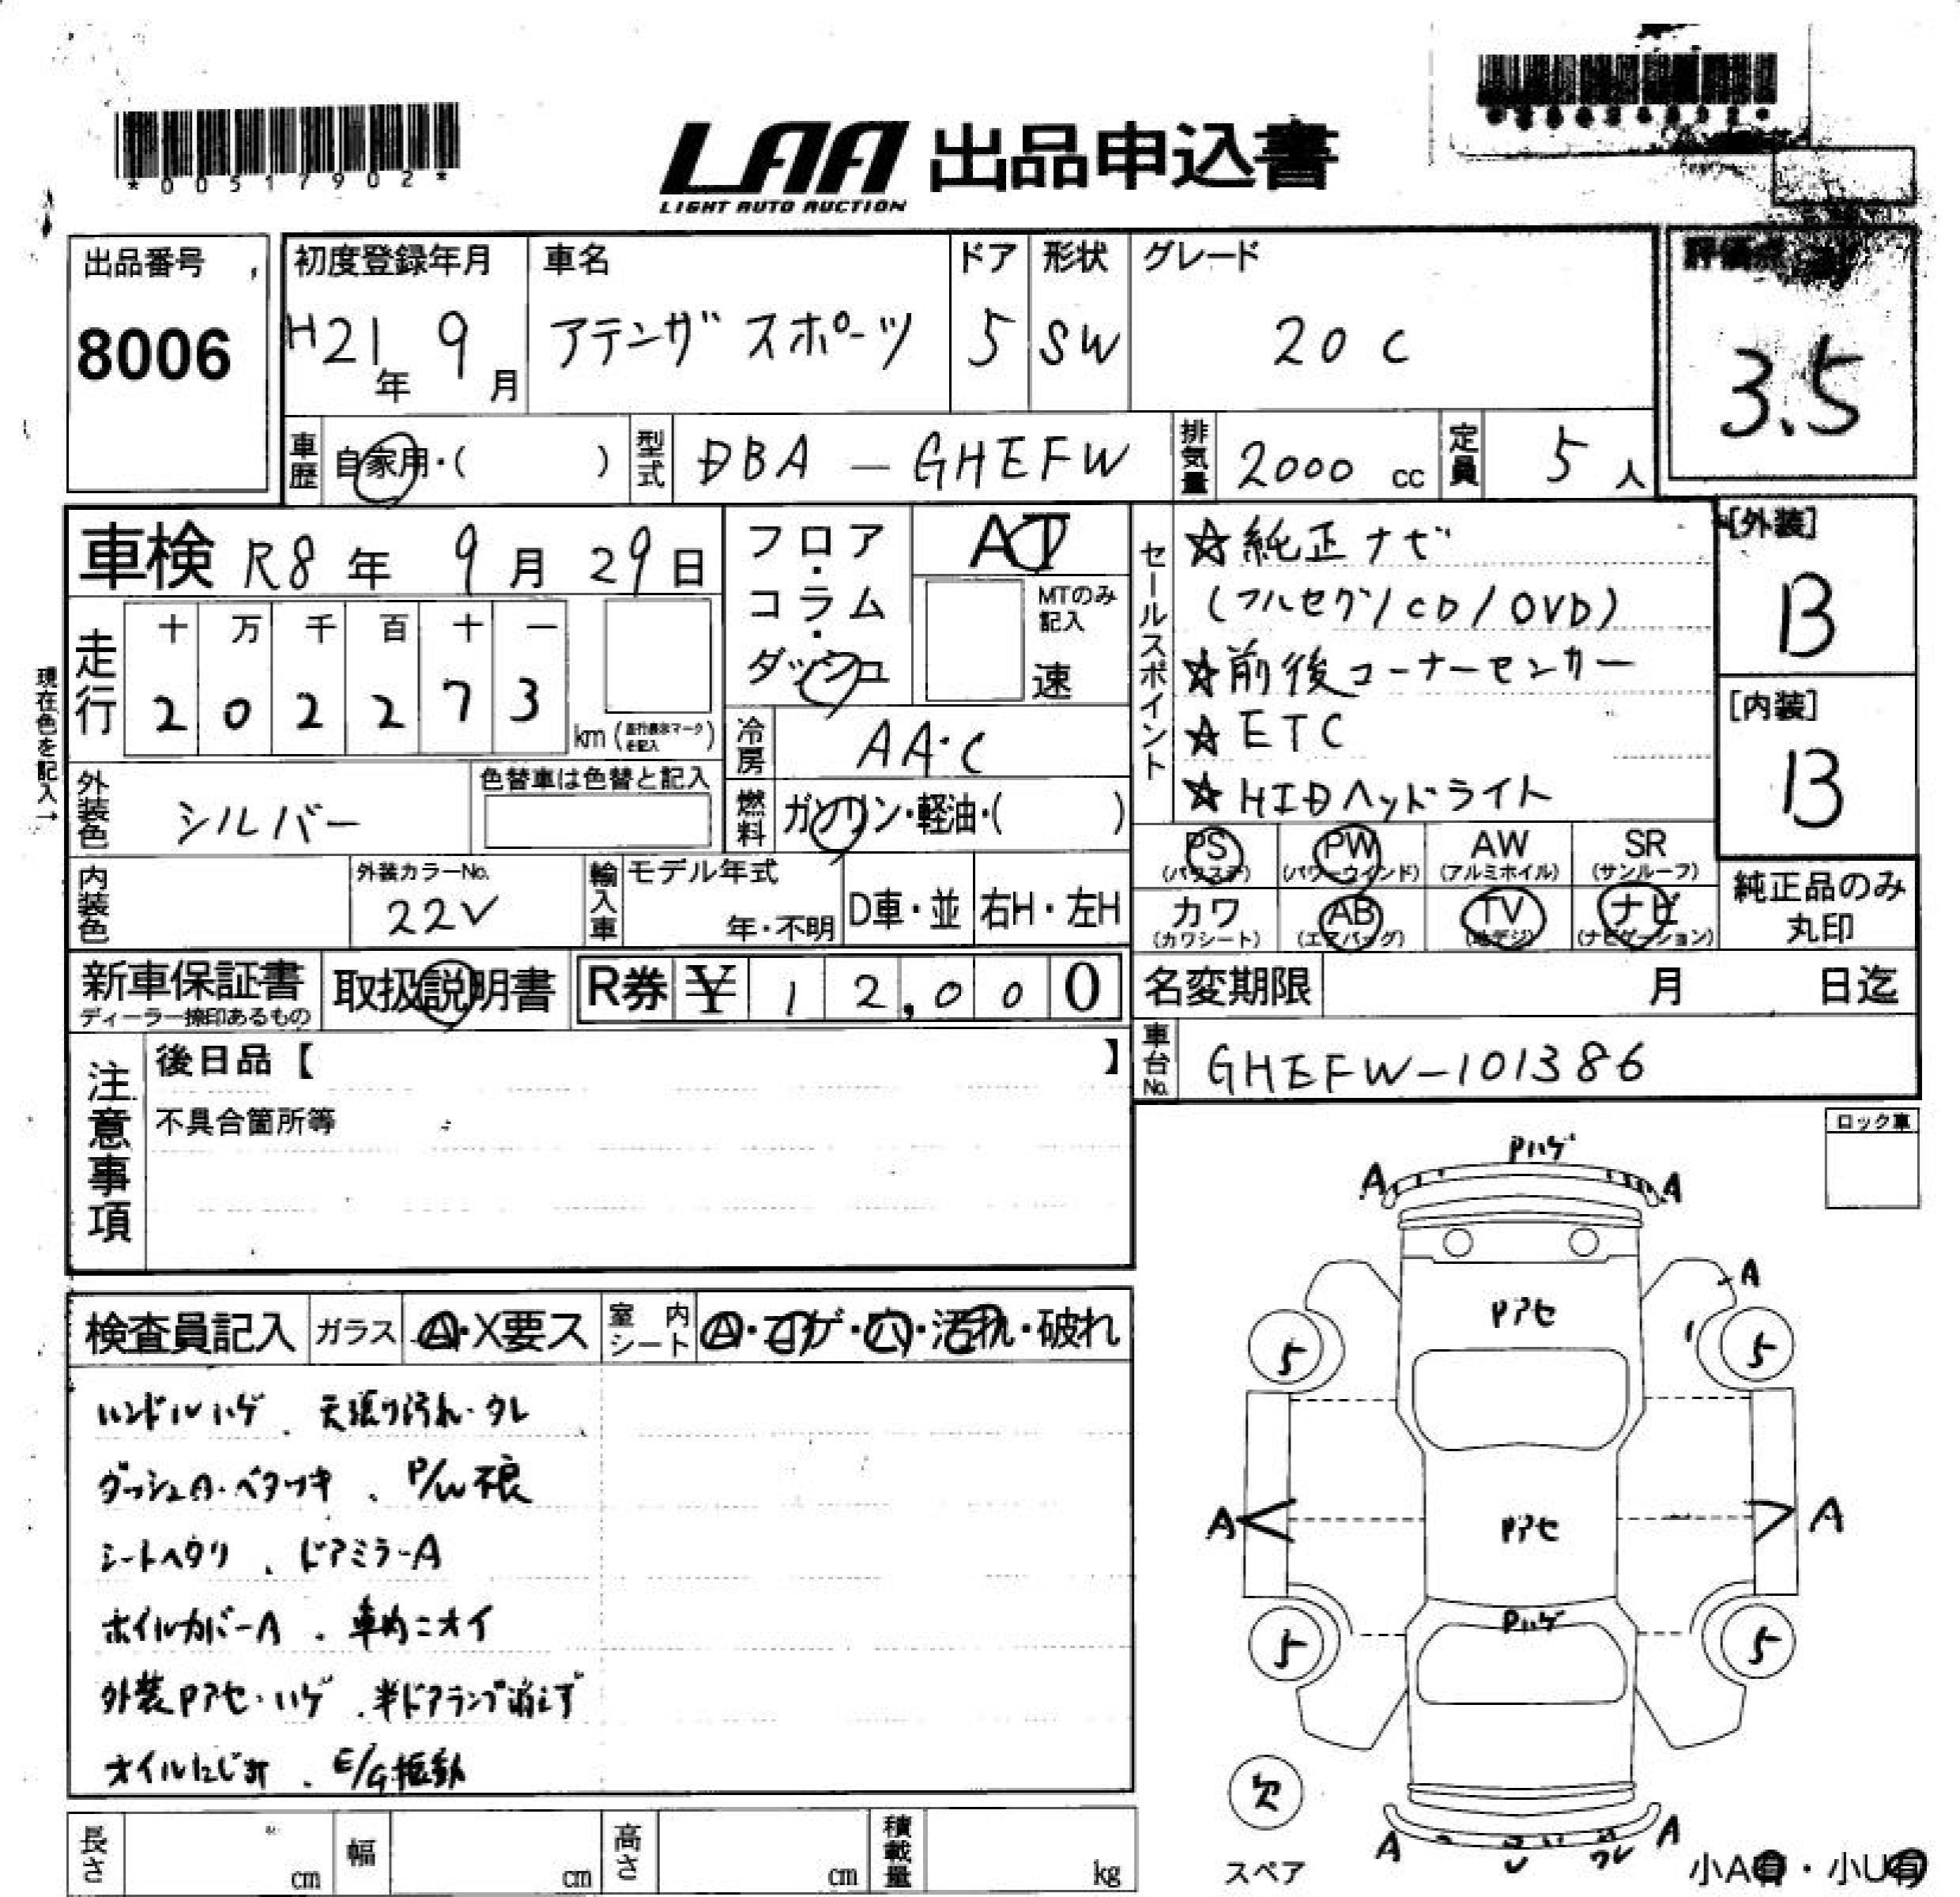 *00517902*
LAA 出品申込書
LIGHT AUTO AUCTION
出品番号
8006
初度登録年月
H21年 9月
車名
アテンザ スポーツ
ドア
5
形状
SW
グレード
20C
評価点
3.5
車歴 自家用・( )
型式 DBA-GHEFW
排気量 2000 cc
定員 5人
車検 R8年 9月 29日
走行
十 万 千 百 十 一
2 0 2 2 7 3
km (走行表示マークを記入)
現在色を記入→
フロア・コラム・ダッシュ
AT
MTのみ記入
速
冷房 AA・C
燃料 ガソリン・軽油・( )
セールスポイント
☆純正ナビ
(フルセグ/CD/DVD)
☆前後コーナーセンサー
☆ETC
☆HIDヘッドライト
[外装]
B
[内装]
B
外装色 シルバー
色替車は色替と記入
内装色
外装カラーNo.
22V
輸入車
モデル年式
年・不明
D車・並
右H・左H
PS (パワステ)
PW (パワーウインド)
AW (アルミホイル)
SR (サンルーフ)
カワ (カワシート)
AB (エアバッグ)
TV (地デジ)
ナビ (ナビゲーション)
純正品のみ丸印
新車保証書
ディーラー捺印あるもの
取扱説明書
R券 ¥ 12,000
名変期限 月 日迄
車台No. GHEFW-101386
注意事項
後日品【 】
不具合箇所等
ロック車
検査員記入
ガラス A・X要ス
室内シート A・コゲ・穴・汚れ・破れ
ハンドルハゲ、天張り汚れ・タレ
ダッシュA・ベタツキ、P/W不良
シートヘタリ、ドアミラーA
ホイルカバーA、車内ニオイ
外装Pアセ・ハゲ、半ドアランプ消えず
オイルにじみ、E/G振動
Pハゲ
A A
A
Pアセ
5 5
A Pアセ A
Pハゲ
5 5
欠
スペア
A U ワレ A
小A有・小U有
長さ cm
幅 cm
高さ cm
積載量 kg